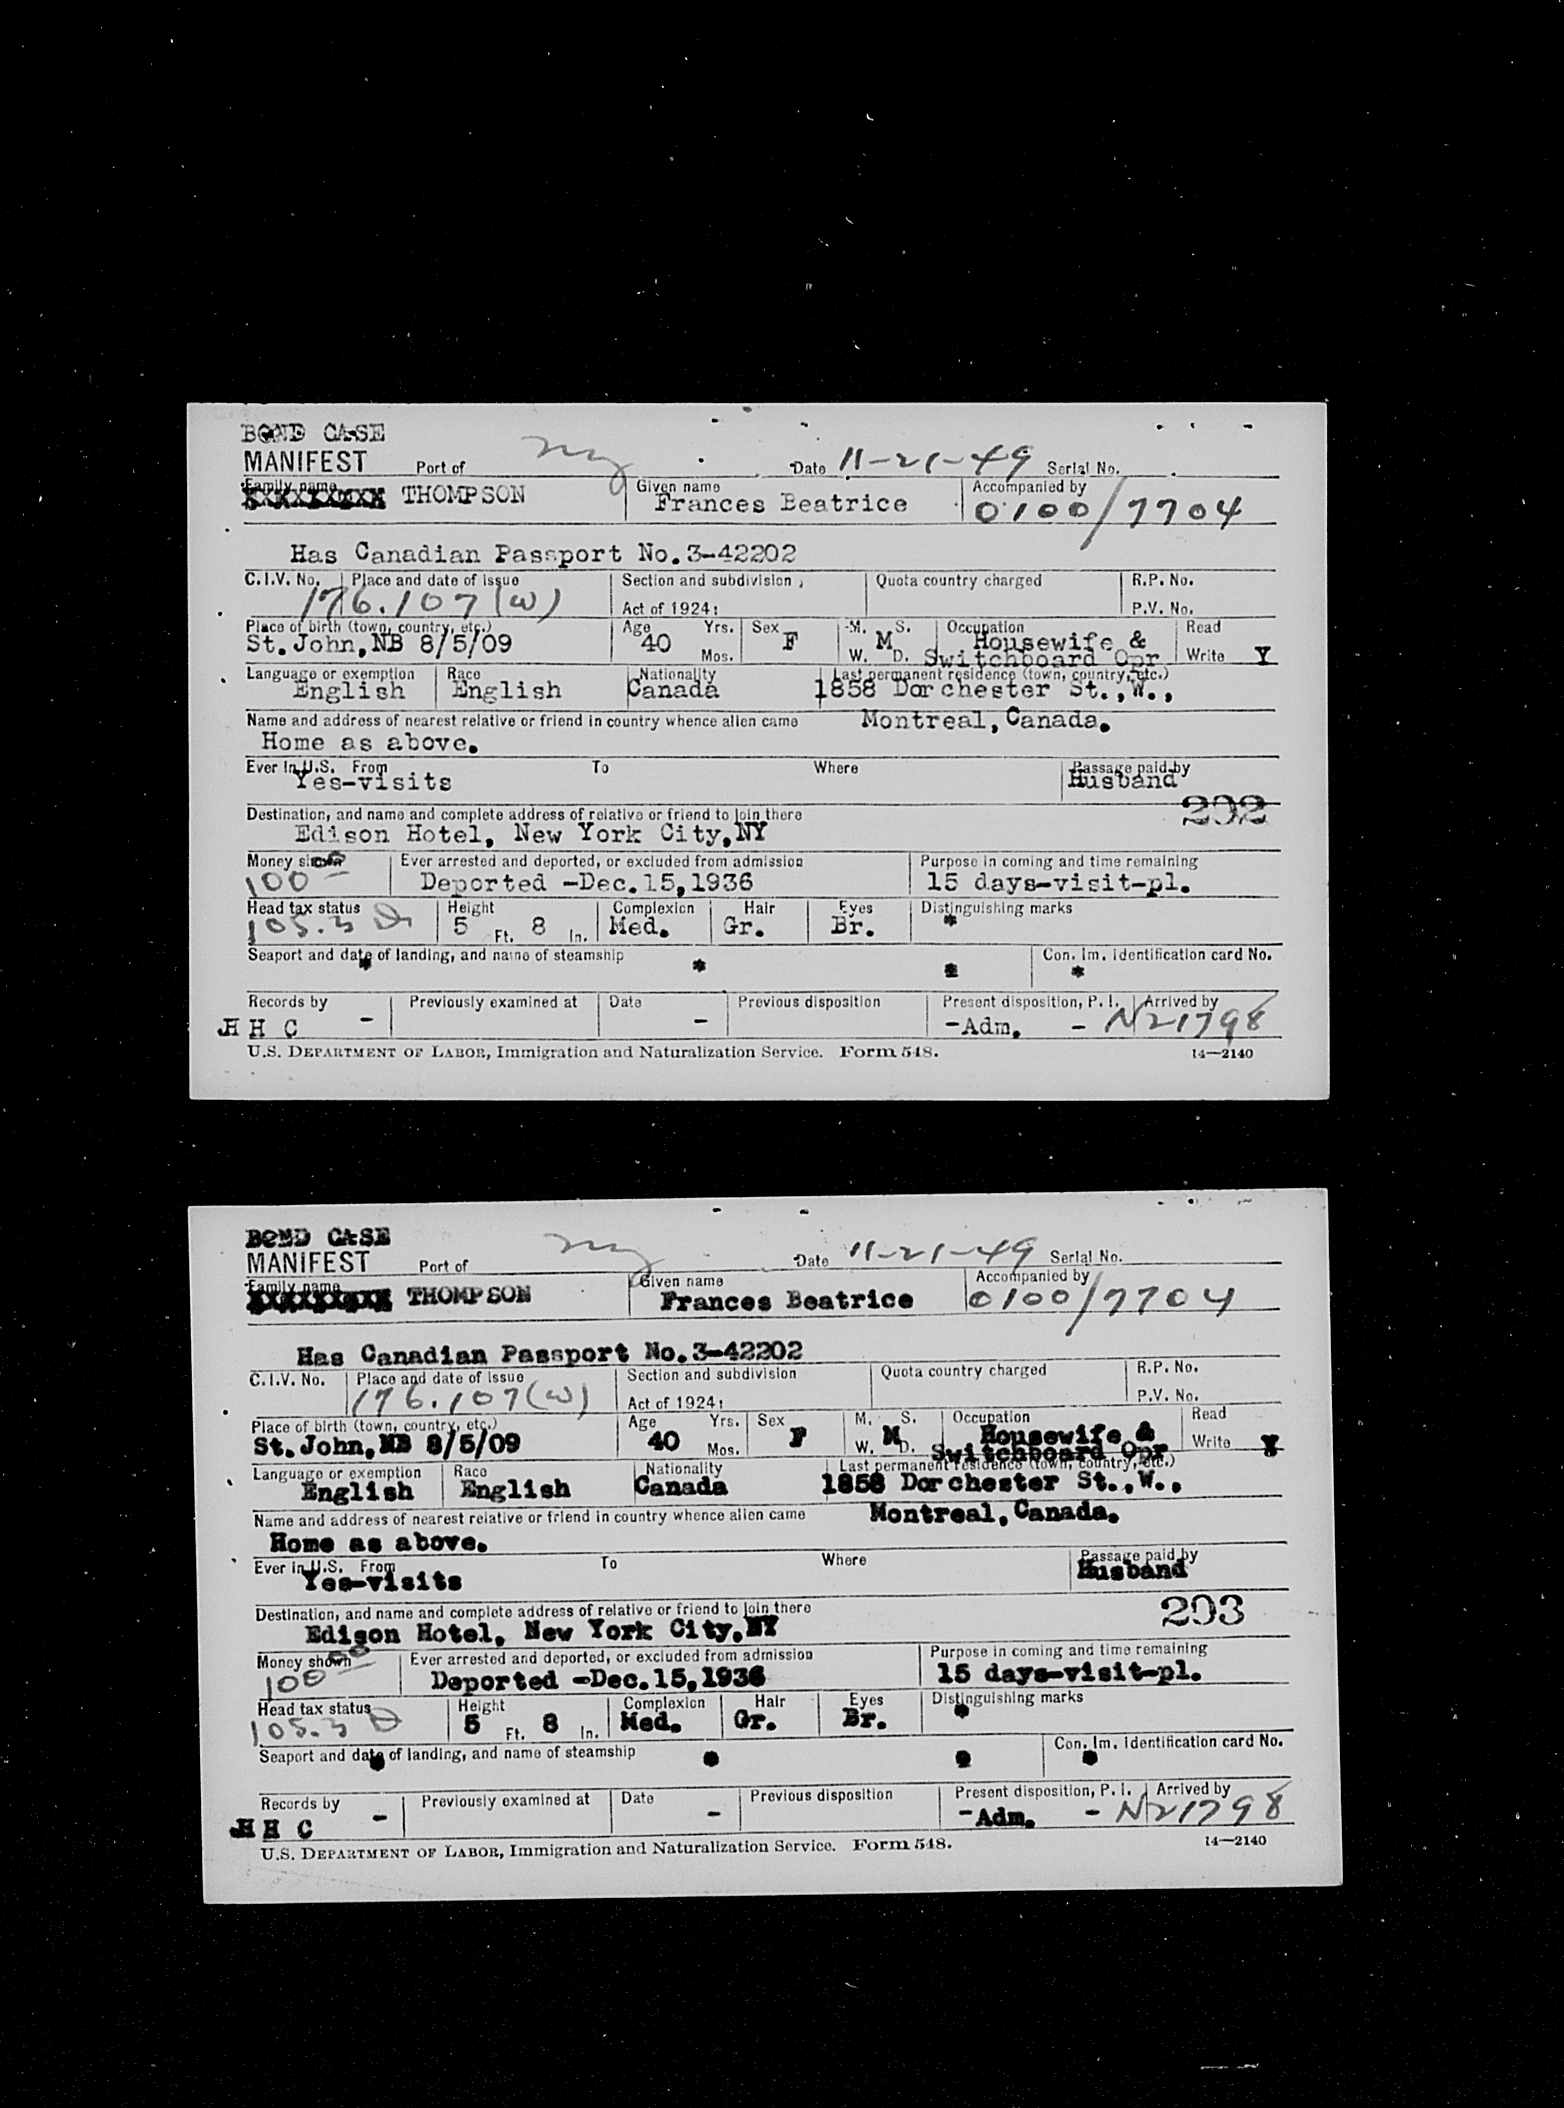 BOND CASE
MANIFEST Port of NY Date 11-21-49 Serial No.
Family name THOMPSON Given name Frances Beatrice Accompanied by 0100/7704
Has Canadian Passport No.3-42202
C.I.V. No. Place and date of issue Section and subdivision Quota country charged R.P. No.
176.107(w) Act of 1924: P.V. No.
Place of birth (town, country, etc.) Age Yrs. Sex M. S. Occupation Read
St.John,NB 8/5/09 40 Mos. F M W. D. Housewife & Switchboard Opr Write Y
Language or exemption Race Nationality Last permanent residence (town, country, etc.)
English English Canada 1858 Dorchester St.,W.,
Name and address of nearest relative or friend in country whence alien came Montreal,Canada.
Home as above.
Ever in U.S. From To Where Passage paid by
Yes-visits Husband
292
Destination, and name and complete address of relative or friend to join there
Edison Hotel, New York City,NY
Money shown Ever arrested and deported, or excluded from admission Purpose in coming and time remaining
100 00 Deported -Dec.15,1936 15 days-visit-pl.
Head tax status Height Complexion Hair Eyes Distinguishing marks
105.3 5 Ft. 8 In. Med. Gr. Br. *
Seaport and date of landing, and name of steamship Con. Im. Identification card No.
* * * *
Records by Previously examined at Date Previous disposition Present disposition, P. I. Arrived by
H H C - - -Adm. - N21798
U.S. DEPARTMENT OF LABOR, Immigration and Naturalization Service. Form 548. 14—2140
BOND CASE
MANIFEST Port of NY Date 11-21-49 Serial No.
Family name THOMPSON Given name Frances Beatrice Accompanied by 0100/7704
Has Canadian Passport No.3-42202
C.I.V. No. Place and date of issue Section and subdivision Quota country charged R.P. No.
176.107(w) Act of 1924: P.V. No.
Place of birth (town, country, etc.) Age Yrs. Sex M. S. Occupation Read
St.John,NB 8/5/09 40 Mos. F M W. D. Housewife & Switchboard Opr Write Y
Language or exemption Race Nationality Last permanent residence (town, country, etc.)
English English Canada 1858 Dorchester St.,W.,
Name and address of nearest relative or friend in country whence alien came Montreal,Canada.
Home as above.
Ever in U.S. From To Where Passage paid by
Yes-visits Husband
293
Destination, and name and complete address of relative or friend to join there
Edison Hotel, New York City,NY
Money shown Ever arrested and deported, or excluded from admission Purpose in coming and time remaining
100 00 Deported -Dec.15,1936 15 days-visit-pl.
Head tax status Height Complexion Hair Eyes Distinguishing marks
105.3 5 Ft. 8 In. Med. Gr. Br. *
Seaport and date of landing, and name of steamship Con. Im. Identification card No.
* * * *
Records by Previously examined at Date Previous disposition Present disposition, P. I. Arrived by
H H C - - -Adm. - N21798
U.S. DEPARTMENT OF LABOR, Immigration and Naturalization Service. Form 548. 14—2140